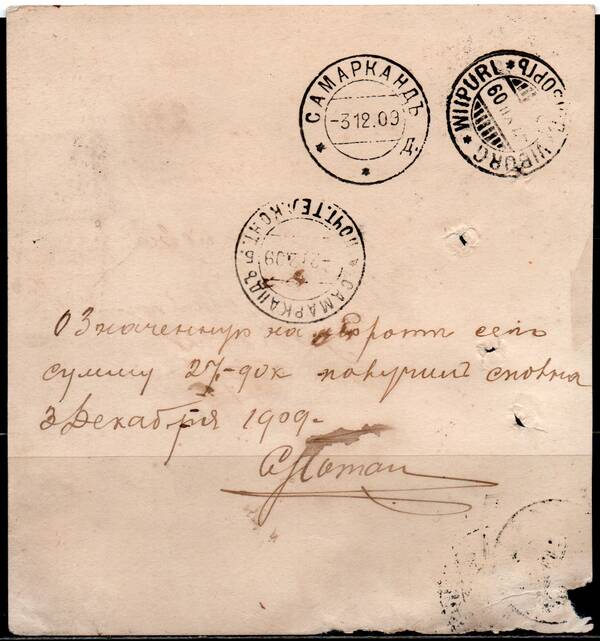 САМАРКАНДЪ
-3.12.09
Д.
WIIPURI * ВЫБОРГЪ * WIBORG
09
САМАРКАНДЪ ПОЧТ.ТЕЛ.КОНТ.
2.12.09
Означенную на обороте сего
сумму 27-90к получилъ сполна
3 Декабря 1909-